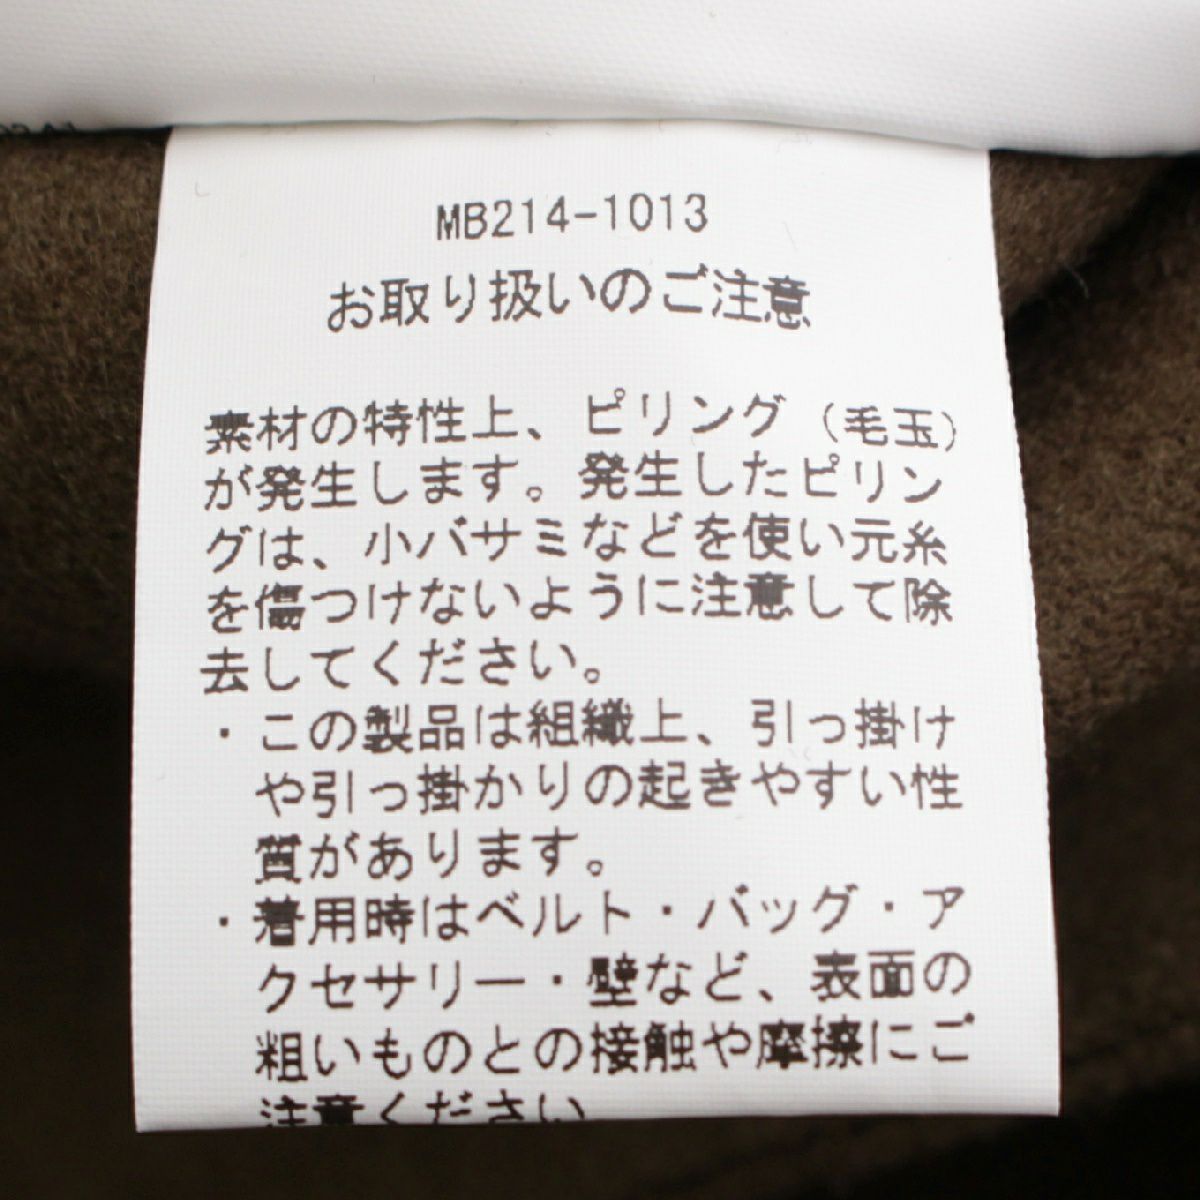 MB214-1013
お取り扱いのご注意
素材の特性上、ピリング(毛玉)
が発生します。発生したピリン
グは、小バサミなどを使い元糸
を傷つけないように注意して除
去してください。
・この製品は組織上、引っ掛け
や引っ掛かりの起きやすい性
質があります。
・着用時はベルト・バッグ・ア
クセサリー・壁など、表面の
粗いものとの接触や摩擦にご
注意ください